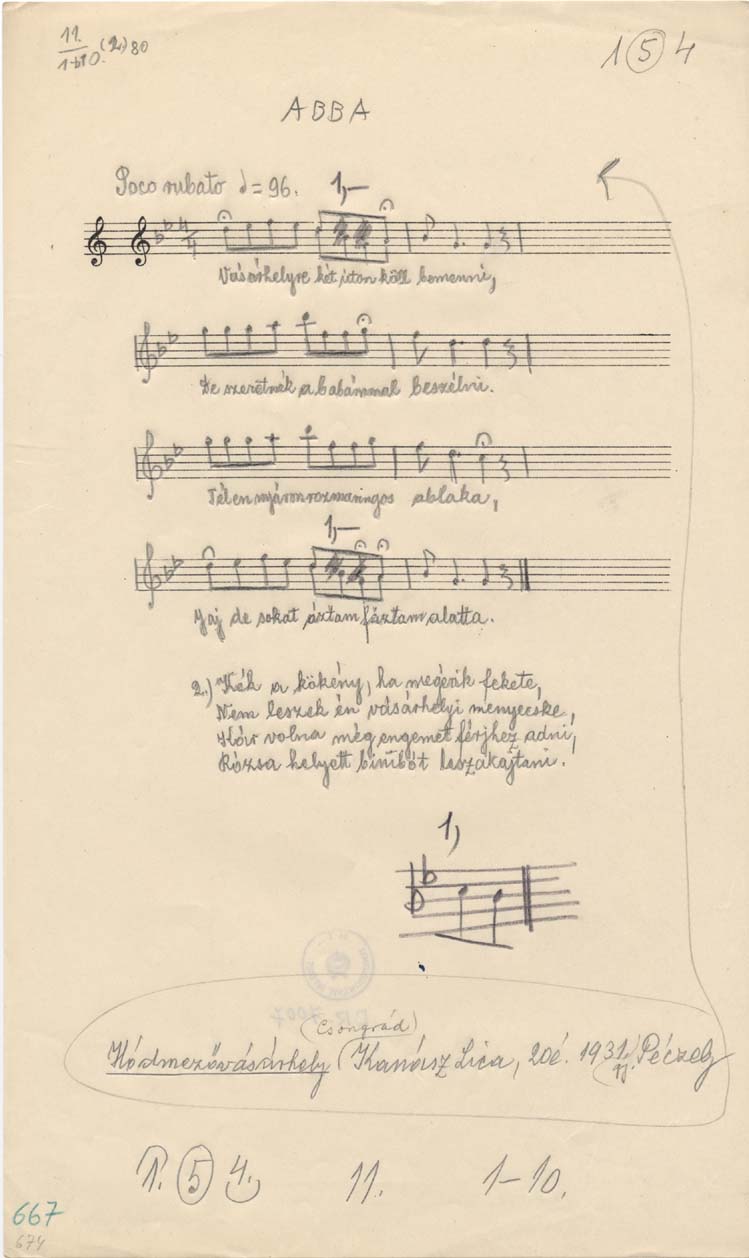 11.
1-10. (2.) 80
1 5 4
ABBA
Poco rubato ♩= 96.
1,—
4
4
Vásárhelyre két úton köll bemenni,
De szeretnék a babámmal beszélni.
Télen nyáron rozmaringos ablaka,
1,—
Jaj de sokat áztam fáztam alatta.
2.) Kék a kökény, ha megérik fekete,
Nem leszek én vásárhelyi menyecske,
Kár volna még engemet férjhez adni,
Rózsa helyett bimbót leszakajtani.
1,
(Csongrád)
Hódmezővásárhely (Kanász Lica, 20é. 1931. Péczely
1. 5 4. 11. 1–10.
667
674